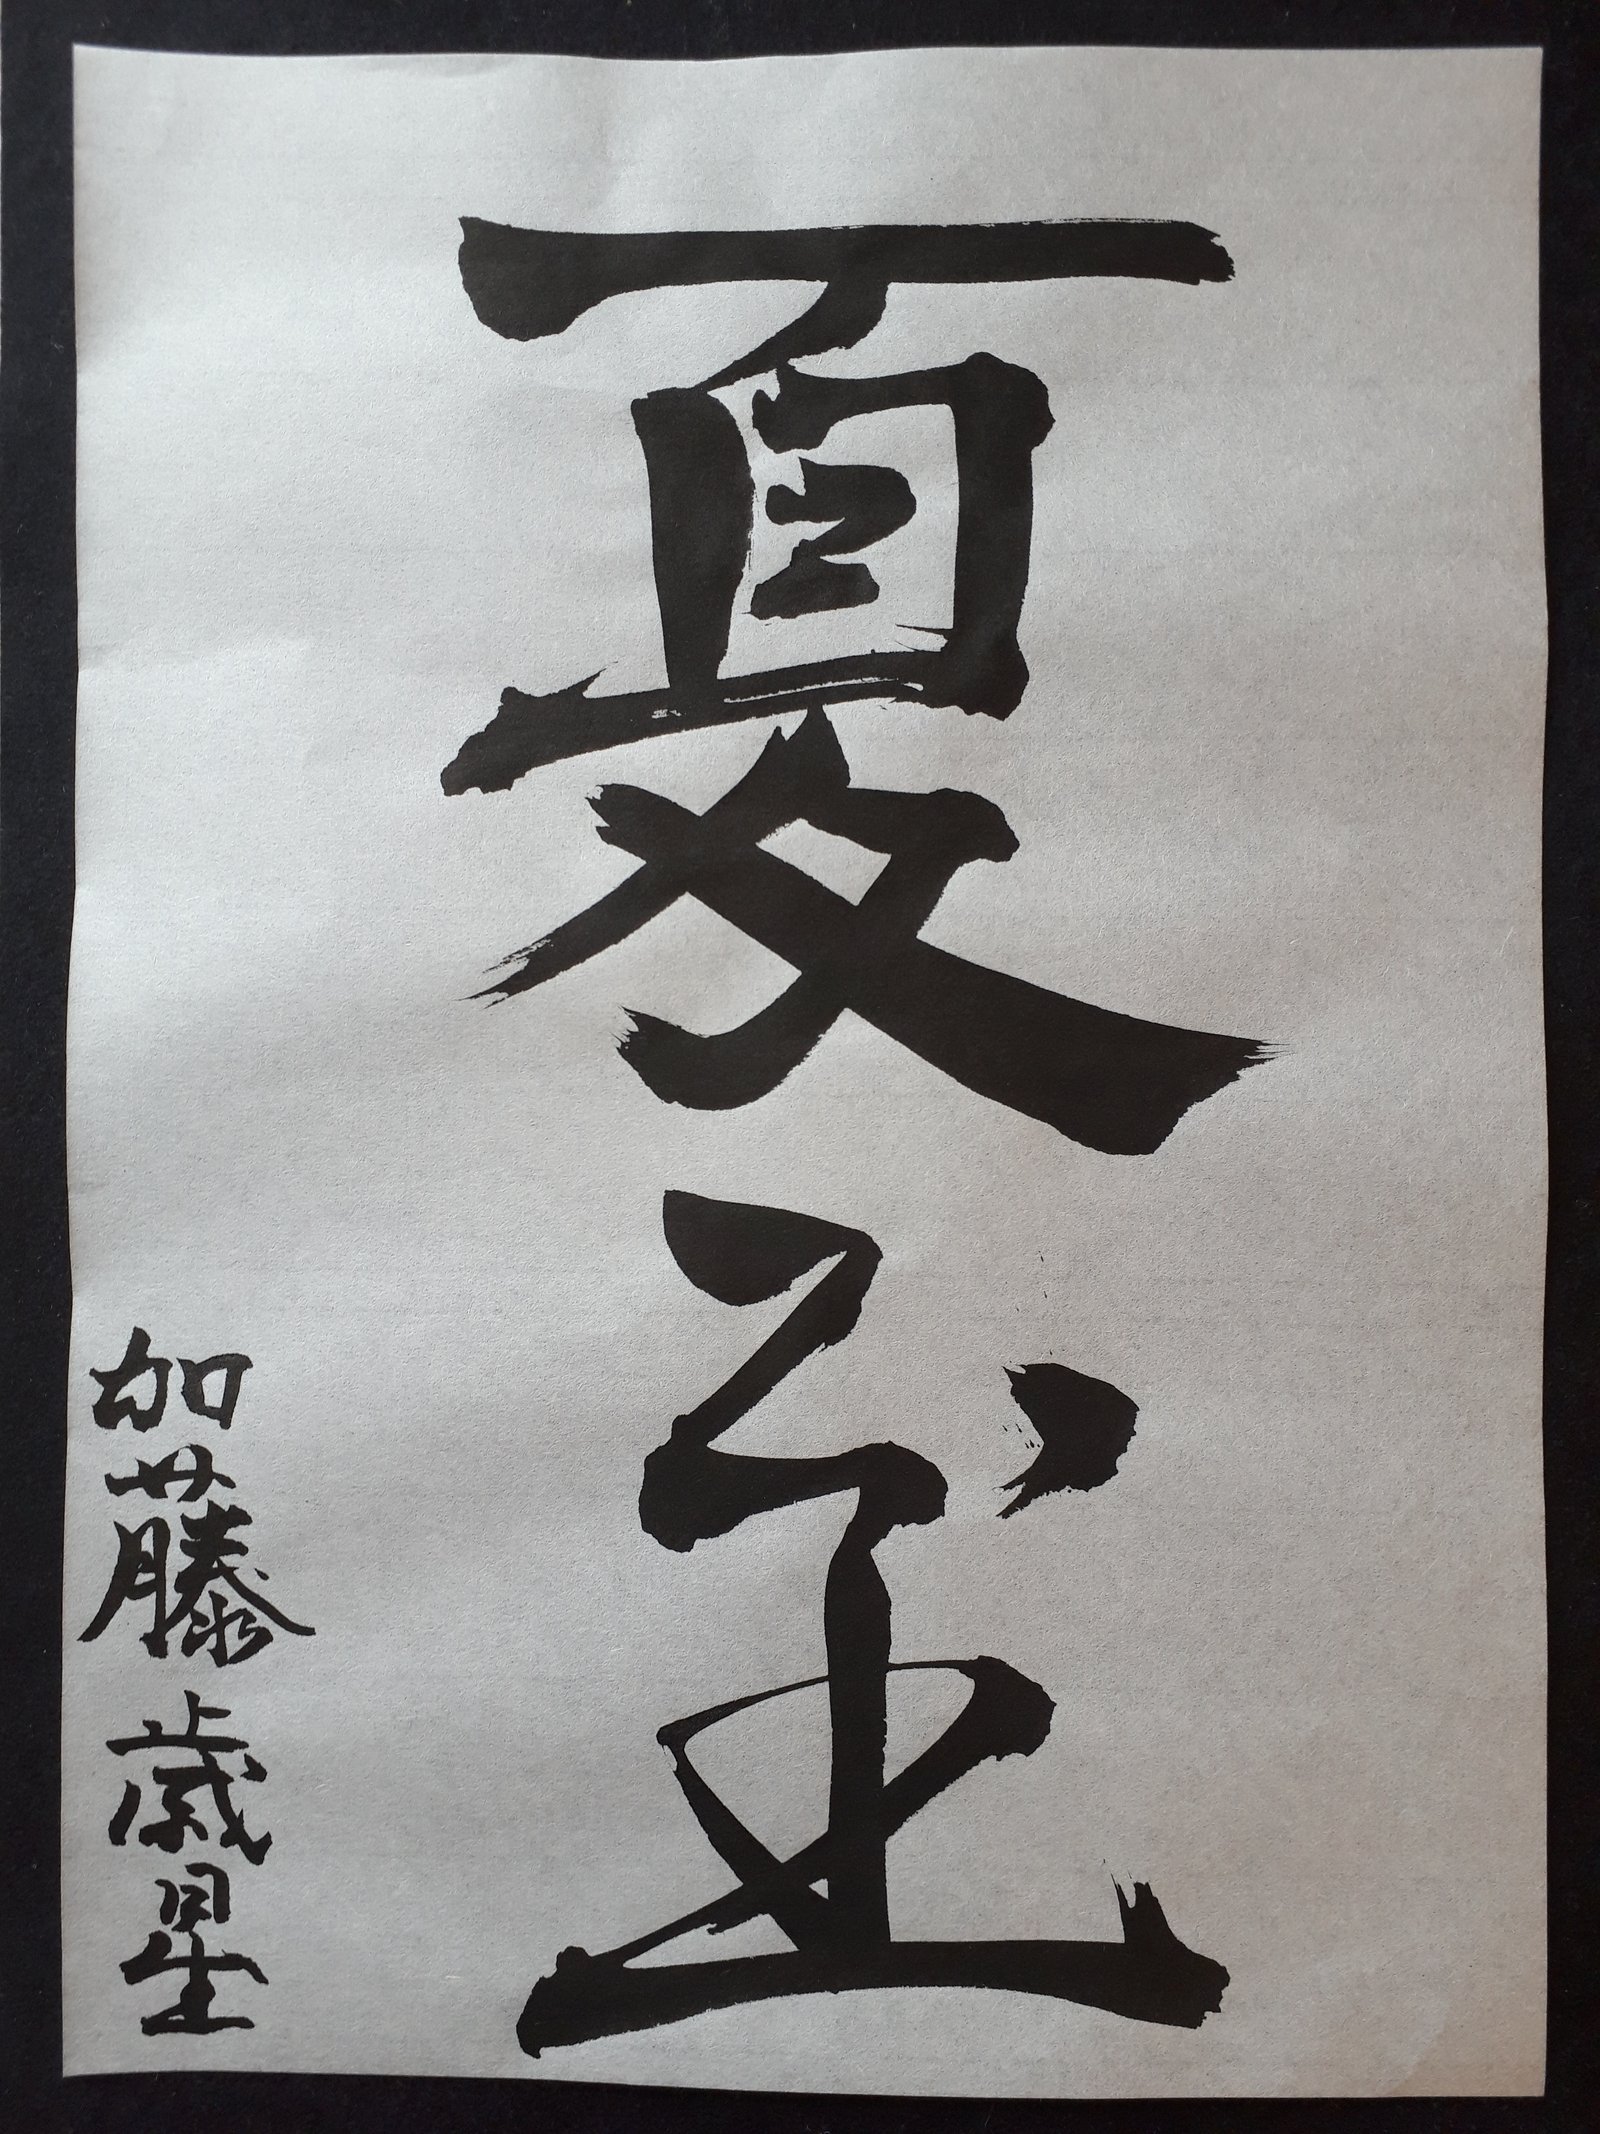 夏至
加藤歳星